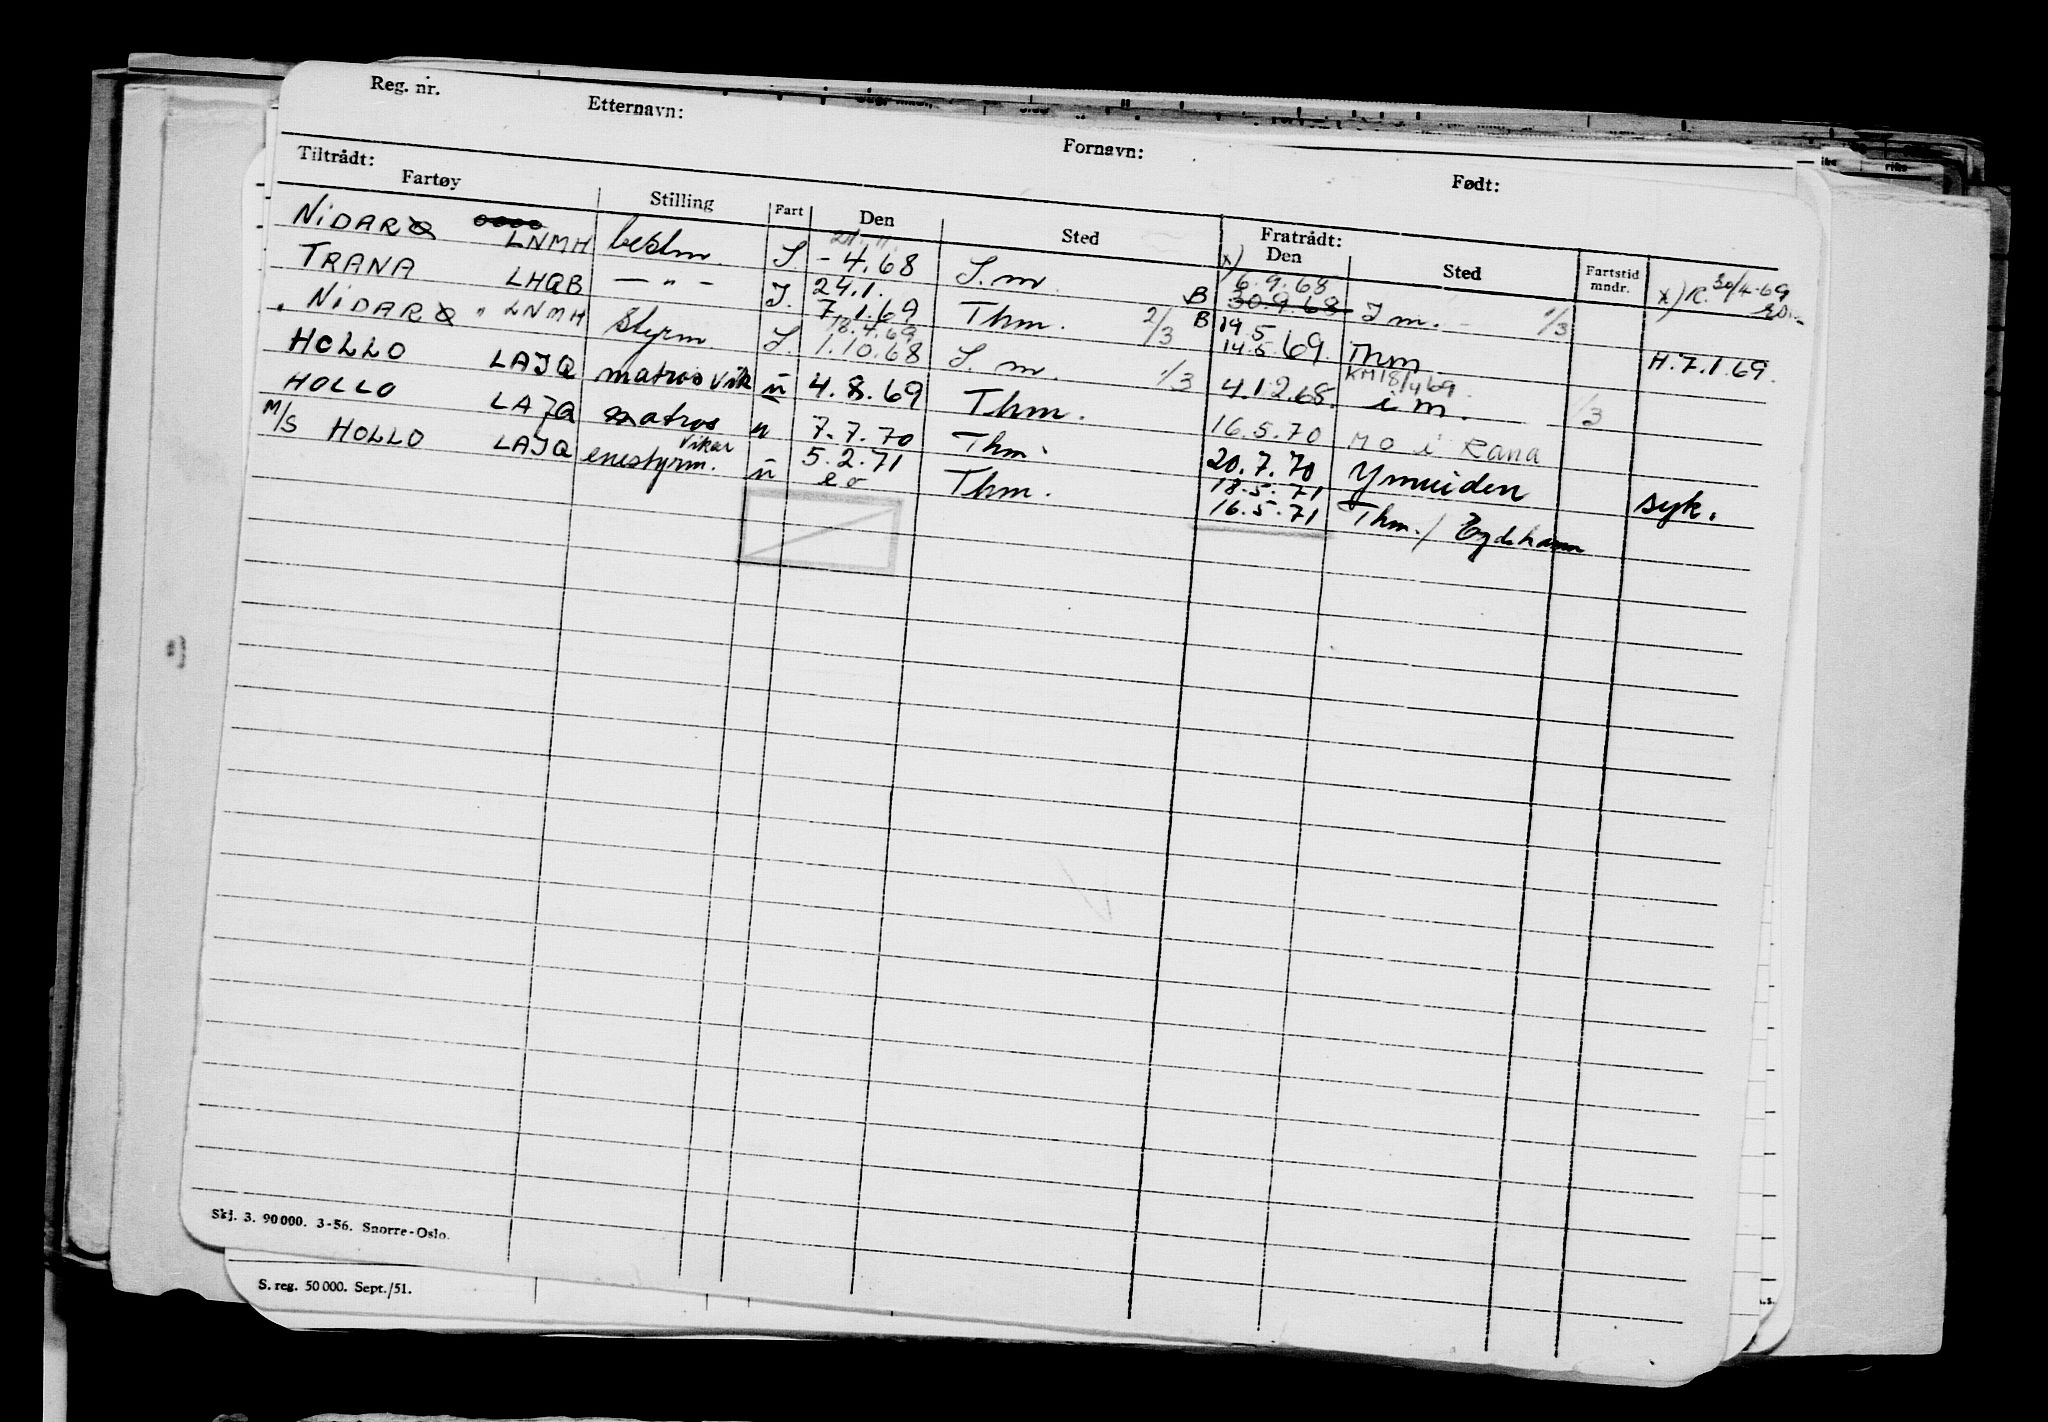 Reg. nr. Etternavn: Fornavn: Født:
Tiltrådt: Fratrådt:
Fartøy Stilling Fart Den Sted Den Sted Fartstid mndr.
NIDARØ LNMH bestm S. - 4.68 S.m. x) 6.9.68 30.9.68 I m. 1/3 x) R. 30/4-69
TRANA LHQB — " - I. 24.1. 7.1.69 Thm. 2/3 B 19.5 14.5.69 Thm H.7.1.69.
" NIDARØ " LNMH Styrm. S. 18.4.69 1.10.68 S. m. 1/3 4.12.68. KM 18/4 69 i m. 1/3
HOLLO LAJQ matros vik ü 4.8.69 Thm. 16.5.70 MO i Rana
HOLLO LAJQ matros u 7.7.70 Thm. 20.7.70 Ymuiden syk.
M/S HOLLO LAJQ enestyrm. vikar ü 5.2.71 Thm. 18.5.71 16.5.71 Thm. / Eydehavn
Skj. 3. 90 000. 3-56. Snorre-Oslo.
S. reg. 50 000. Sept./51.